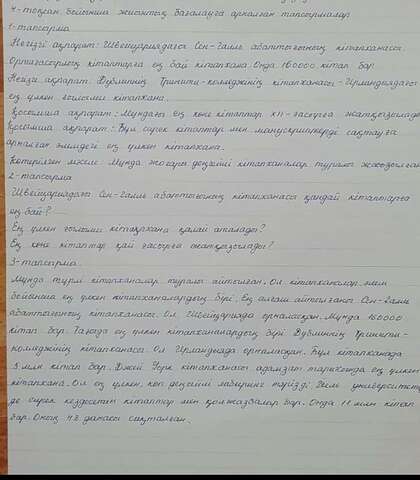 4-тоқсан бойынша жиынтық бағалауға арналған тапсырмалар
1-тапсырма
Негізгі ақпарат: Швейцариядағы Сен-Галль абаттығының кітапханасы.
Ортағасырлық кітаптарға ең бай кітапхана. Онда 160000 кітап бар.
Негізгі ақпарат: Дублиннің Тринити-колледжінің кітапханасы-Ирландиядағы
ең үлкен ғылыми кітапхана.
Қосымша ақпарат: Мұндағы ең көне кітаптар XII-ғасырға жатқызылады.
Қосымша ақпарат: Бұл сирек кітаптар мен манускриптерді сақтауға
арналған әлемдегі ең үлкен кітапхана.
Көтерілген мәселе: Мұнда жоғары деңгейлі кітапханалар туралы жазылған
2-тапсырма
Швейцариядағы Сен-Галль абаттығының кітапханасы қандай кітаптарға
ең бай?
Ең үлкен ғылыми кітапхана қалай аталады?
Ең көне кітаптар қай ғасырға жатқызылады?
3-тапсырма
Мұнда түрлі кітапханалар туралы айтылған. Ол кітапханалар әлем
бойынша ең үлкен кітапханалардың бірі. Ең алғаш айтылғаны Сен-Галль
абаттығының кітапханасы. Ол Швейцарияда орналасқан. Мұнда 160000
кітап бар. Тағыда ең үлкен кітапханалардың бірі Дублиннің Тринити-
колледжінің кітапханасы. Ол Ирландияда орналасқан. Бұл кітапханада
5 млн кітап бар. Джей Уокр кітапханасы адамзат тарихында ең үлкен
кітапхана. Ол ең үлкен, көп деңгейлі лабиринт тәрізді. Йель университетін
де сирек кездесетін кітаптар мен қолжазбалар бар. Онда 11 млн кітап
бар. Оның 48 данасы сақталған.